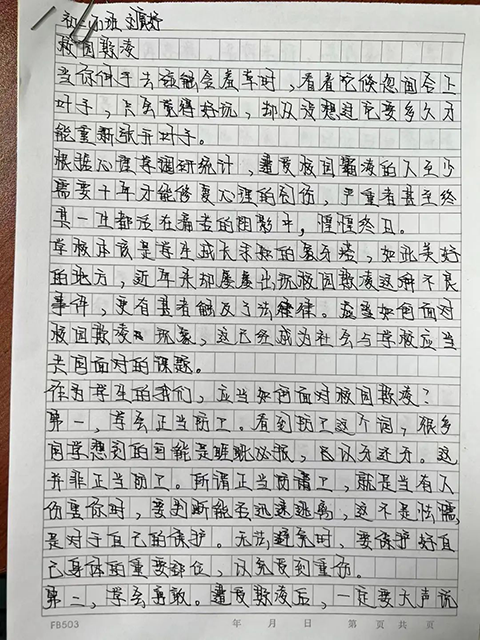 校园欺凌
当你伸手去碰触含羞草时，看着它倏忽间合上
叶子，只会觉得好玩，却从没想过它要多久才
能重新张开叶子。
根据心理学调研统计，遭受校园霸凌的人至少
需要十年才能修复心理的创伤，严重者甚至终
其一生都活在痛苦的阴影中，惶惶终日。
学校本该是学生成长求知的象牙塔，如此美好
的地方，近年来却屡屡出现校园欺凌这种不良
事件，更有甚者触及了法律。该当如何面对
校园欺凌现象，这已经成为社会与学校应当
共同面对的课题。
作为学生的我们，应当如何面对校园欺凌？
第一，学会正当防卫。看到防卫这个词，很多
同学想到的可能是睚眦必报，以牙还牙。这
并非正当防卫。所谓正当防卫，就是当有人
伤害你时，要判断能否迅速逃离，这不是怯懦，
是对于自己的保护。无法避免时，要保护好自
己身体的重要部位，以免受到重伤。
第二，学会勇敢。遭受欺凌后，一定要大声说
FB503 年 月 日 第 页 共 页